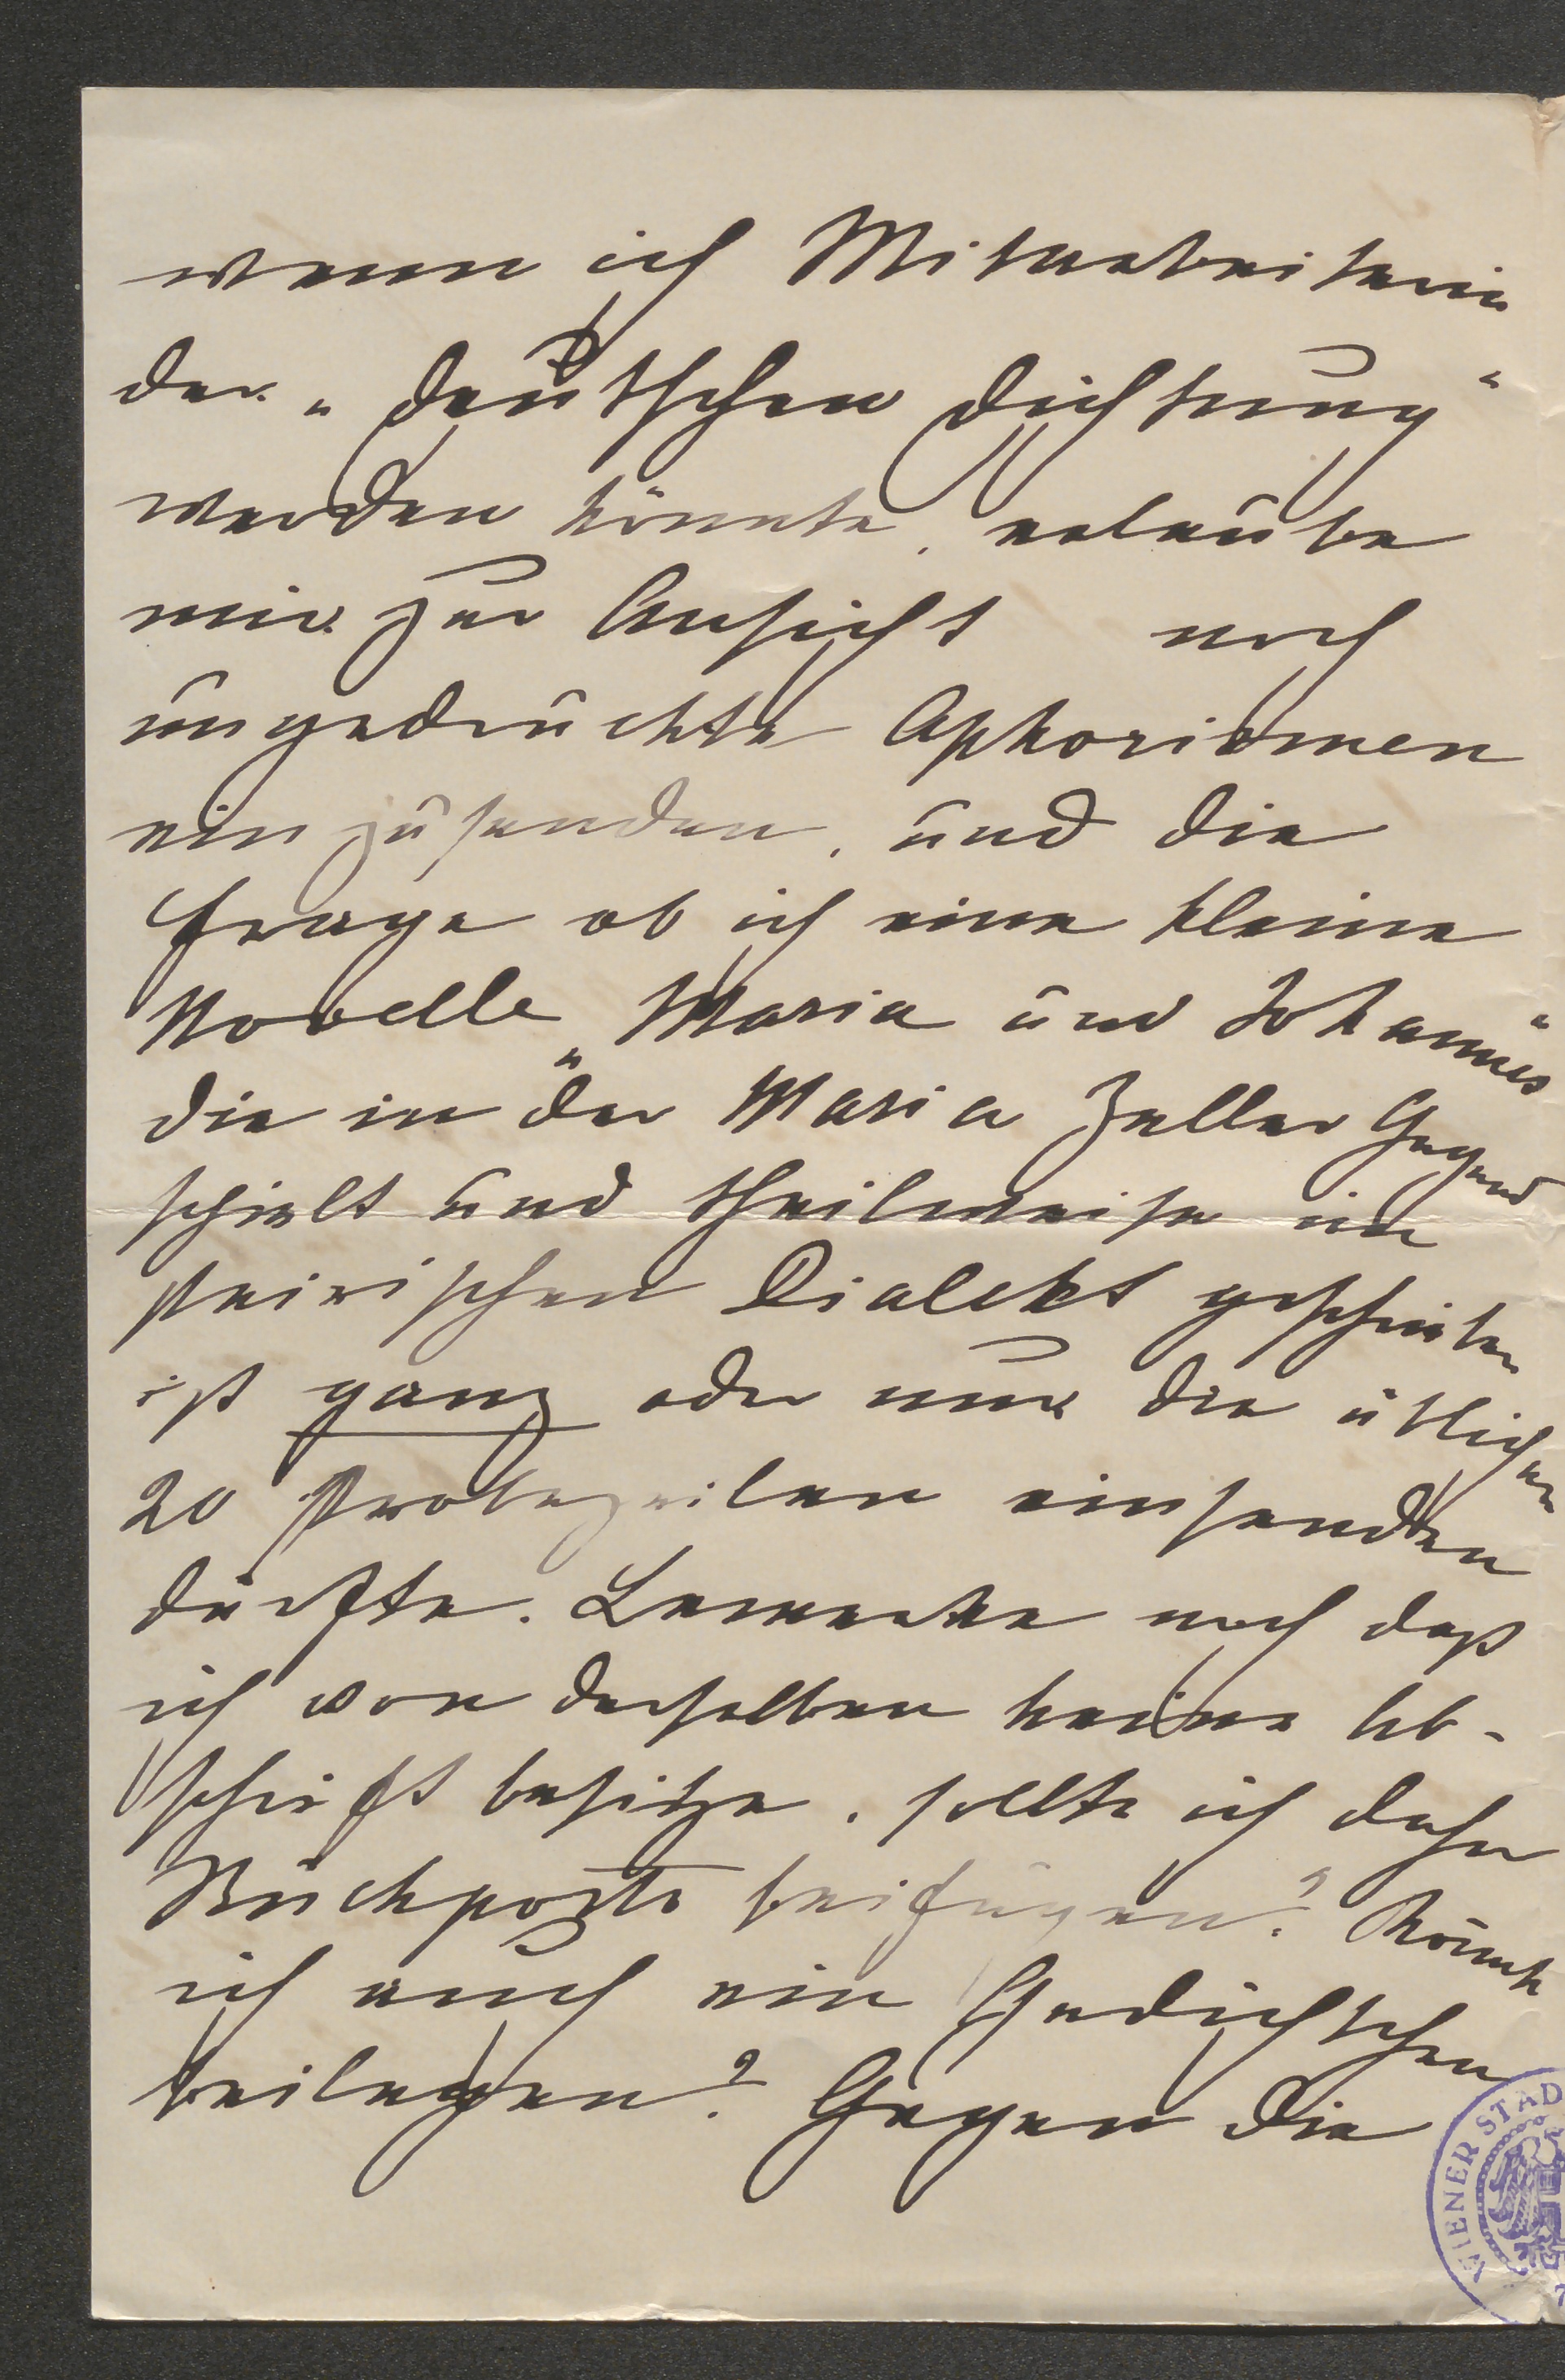 wenn ich Mitarbeiterin
der „deutschen Dichtung"
werden könnte, erlaube
mir zur Ansicht noch
ungedruckte Aphorismen
einzusenden, und die
Frage ob ich eine kleine
Novelle „Maria und Johannes"
die in der Maria Zeller Gegend
spielt und theilweise im
steirischen Dialekt geschrieben
ist ganz oder nur die üblichen
20 Probezeilen einsenden
dürfte. Bemerke noch daß
ich von derselben keine Ab-
schrift besitze, sollte ich daher
Rückporto beifügen? Könnte
ich auch ein Gedichtchen
beilegen? Gegen die
WIENER STAD